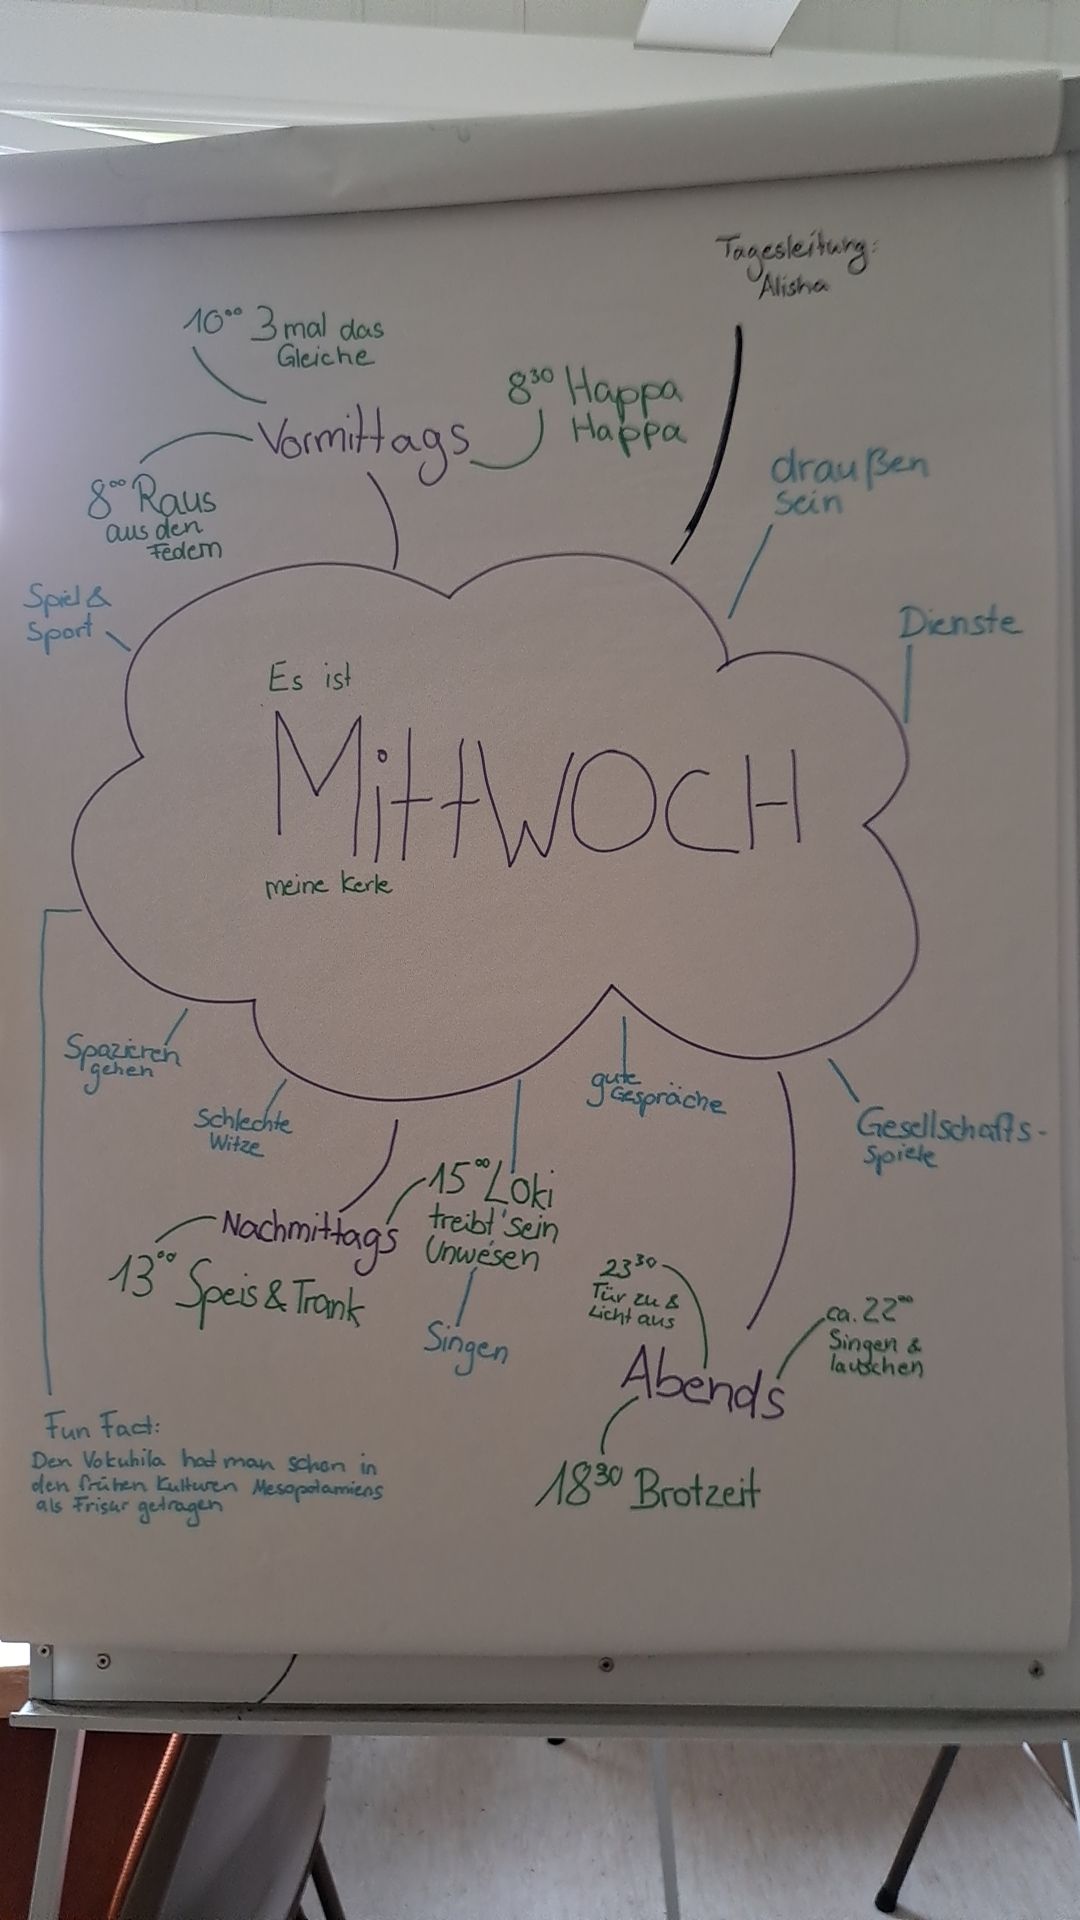 Tagesleitung:
Alisha
10⁰⁰ 3 mal das
Gleiche
8³⁰ Happa
Happa
Vormittags
8⁰⁰ Raus
aus den
Federn
draußen
sein
Spiel &
Sport
Dienste
Es ist
MittWOCH
meine Kerle
Spazieren
gehen
Schlechte
Witze
gute
Gespräche
Gesellschafts-
spiele
Nachmittags
13⁰⁰ Speis & Trank
15⁰⁰ Loki
treibt sein
Unwesen
Singen
23³⁰
Tür zu &
Licht aus
ca. 22⁰⁰
Singen &
lauschen
Abends
18³⁰ Brotzeit
Fun Fact:
Den Vokuhila hat man schon in
den frühen Kulturen Mesopotamiens
als Frisur getragen